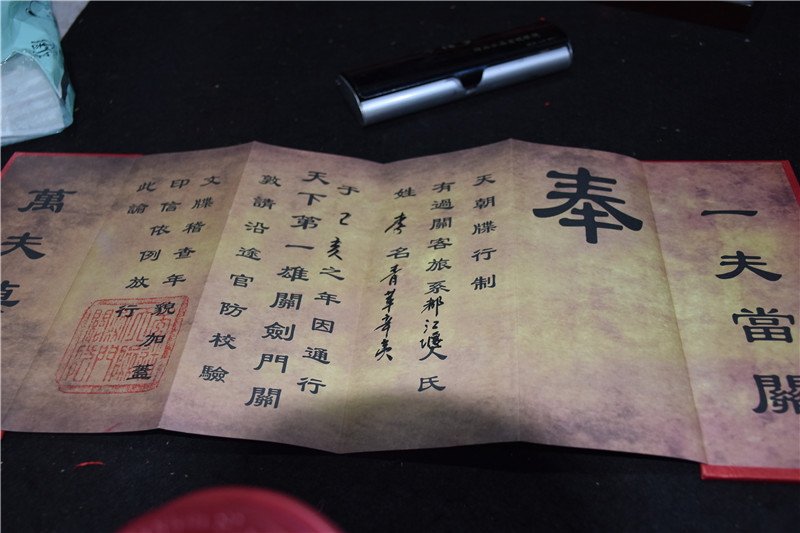 一夫當關
奉
天朝牒行制
有過關客旅系都江堰人氏
姓李名青
于乙亥之年因通行
天下第一雄關劍門關
敦請沿途官防校驗
文牒稽查年貌加蓋
印信依例放行
此諭
萬夫莫